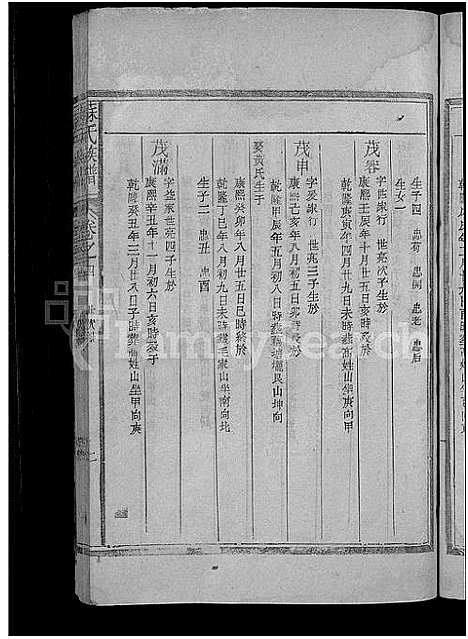 生子四 忠荷 忠 忠老 忠后
生女一
茂容
字世家行 世亮次子生於
康熙壬辰年十月廿五日亥時歿於
乾隆庚寅年四月廿九日未時葬高姓山坐庚向甲
茂申
字 行 世亮三子生於
康熙己亥年八月初五日亥時歿於
乾隆甲辰年五月初八日時葬 艮山坤向
娶黃氏生于
康熙癸卯年八月廿五日巳時終於
乾隆丁巳年八月初九日未時葬毛家山坐南向北
生子二 忠丑 忠酉
茂滿
字益家世亮四子生於
康熙辛丑年十一月初六日亥時歿于
乾隆癸丑年三月廿八日子時葬高姓山坐甲向庚
蘇氏族譜
卷之四
FamilySearch